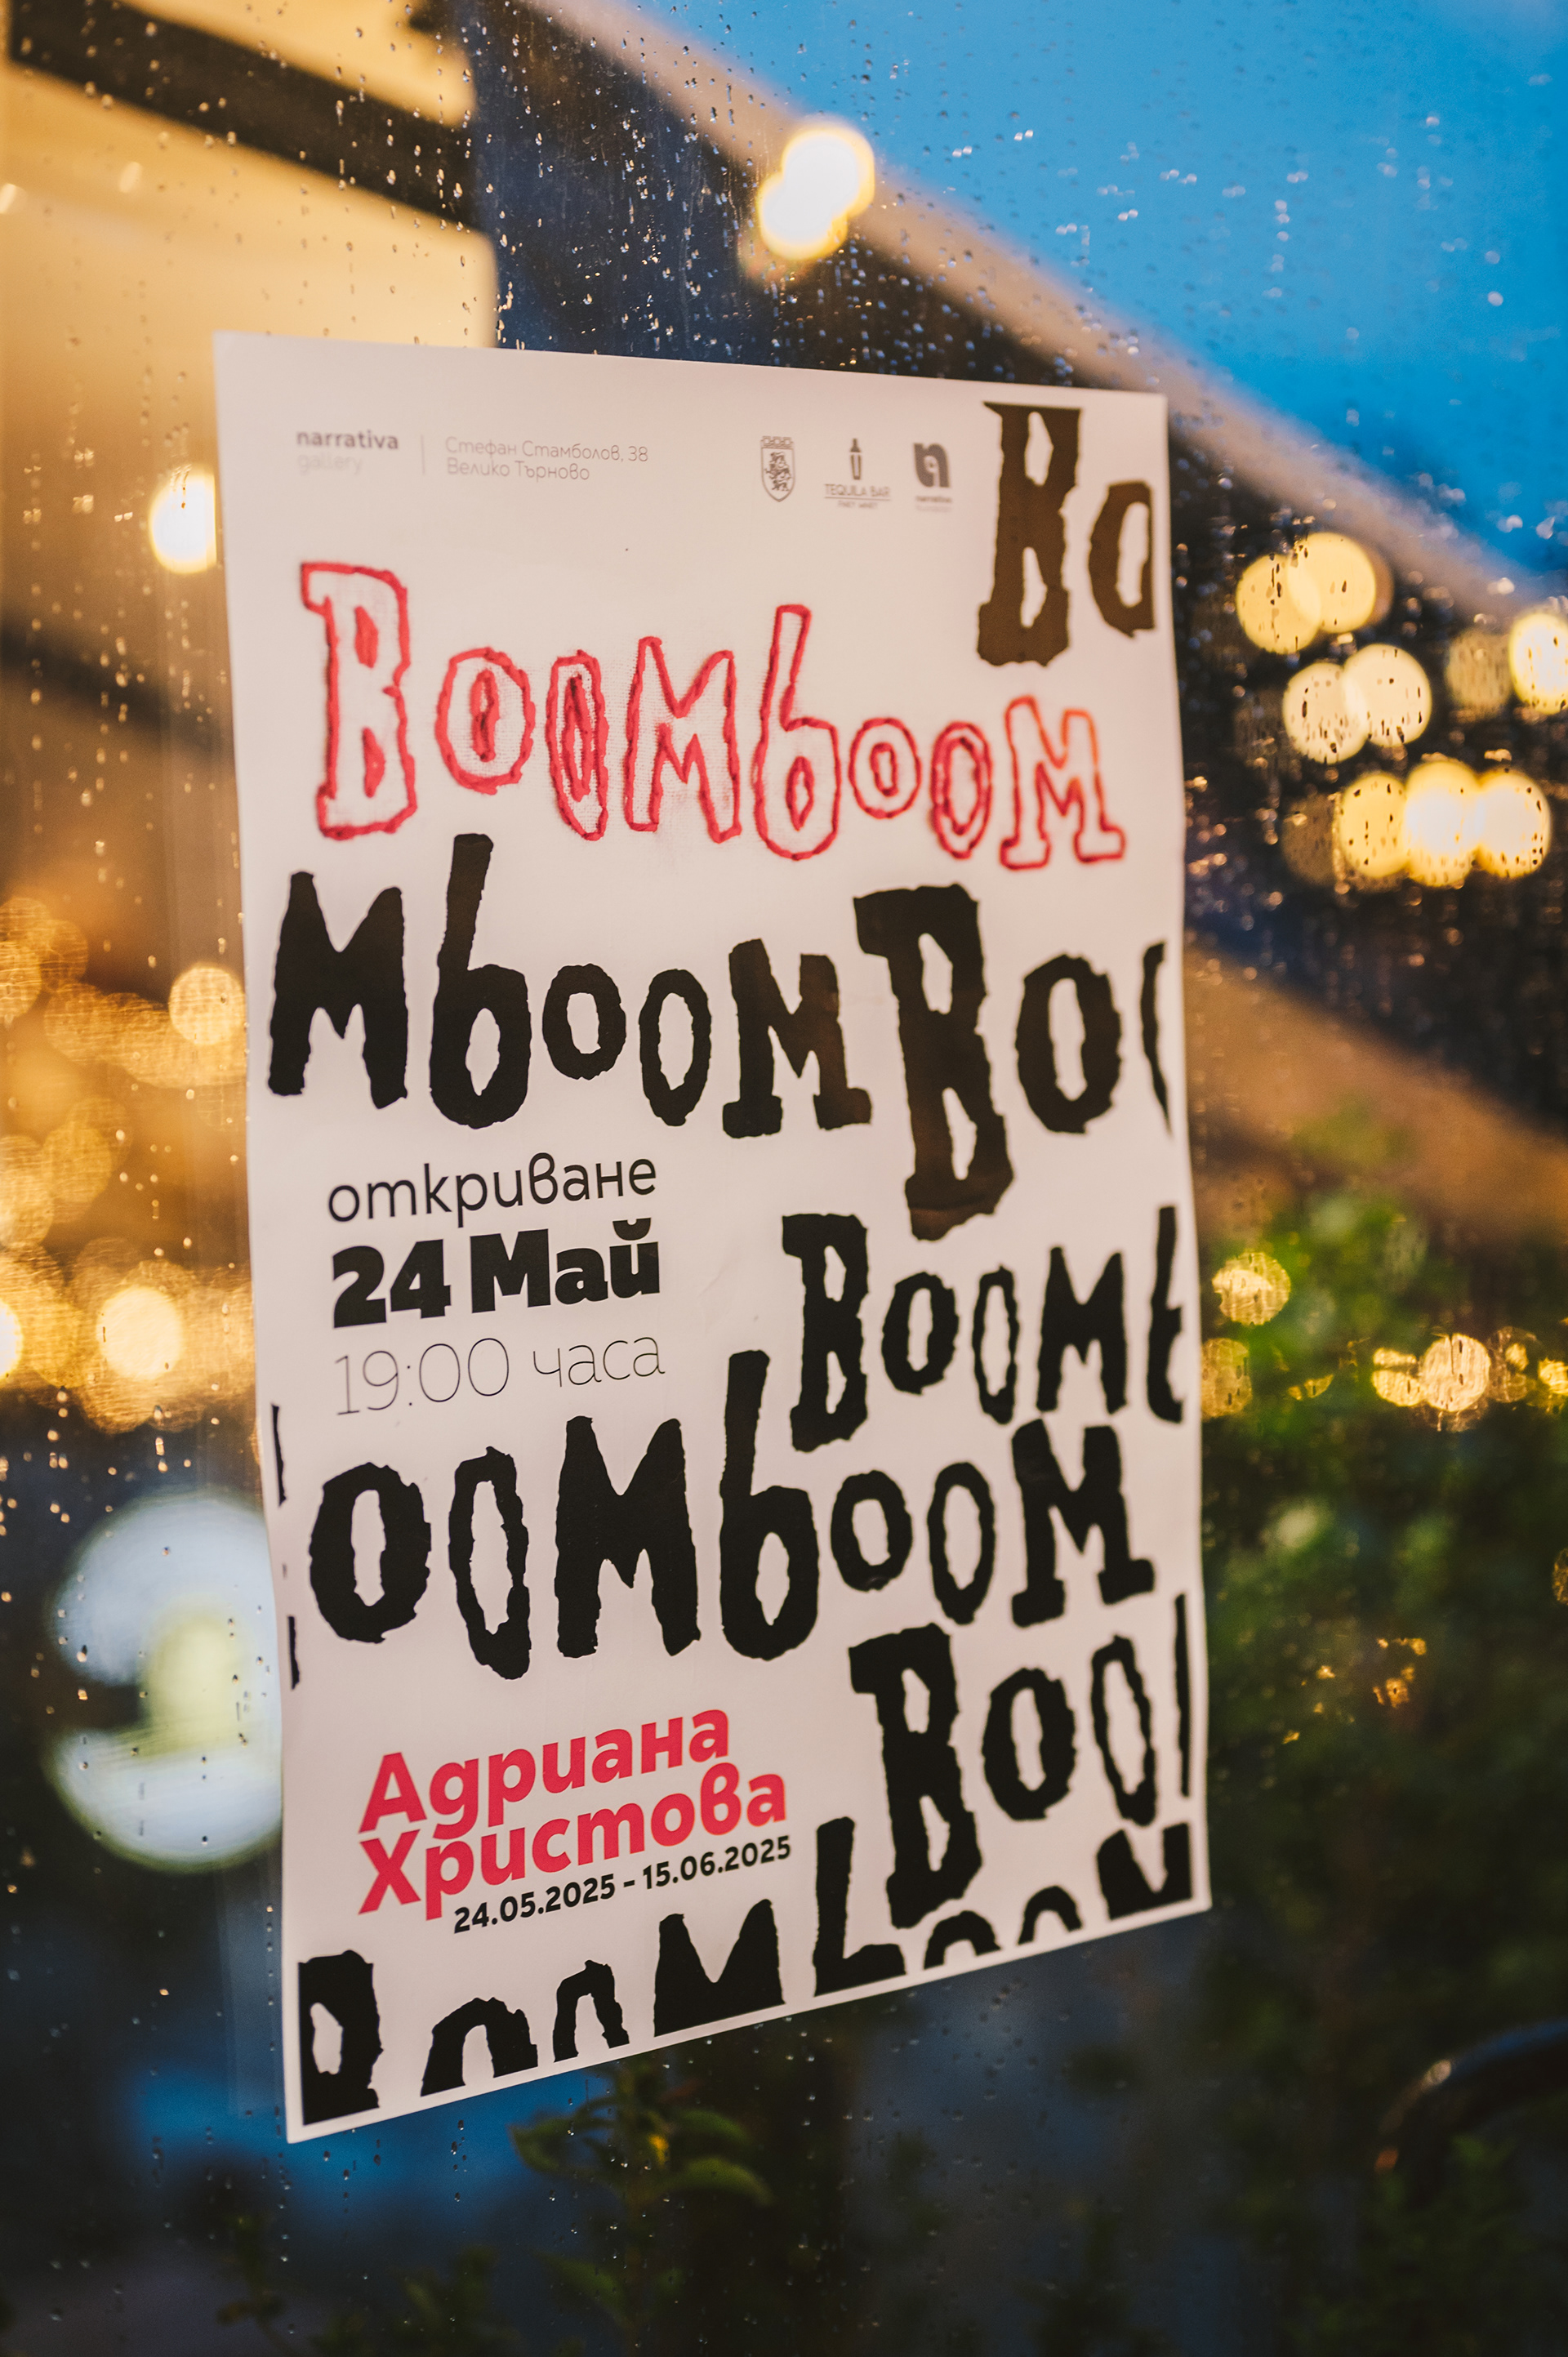 narrativa
gallery
Стефан Стамболов, 38
Велико Търново
TEQUILA BAR
narrativa
Bo
Boomboom
mboomBoo
откриване
24 Май
19:00 часа
Boomb
oomboom
Boo
Адриана
Христова
24.05.2025 - 15.06.2025
Boomboom